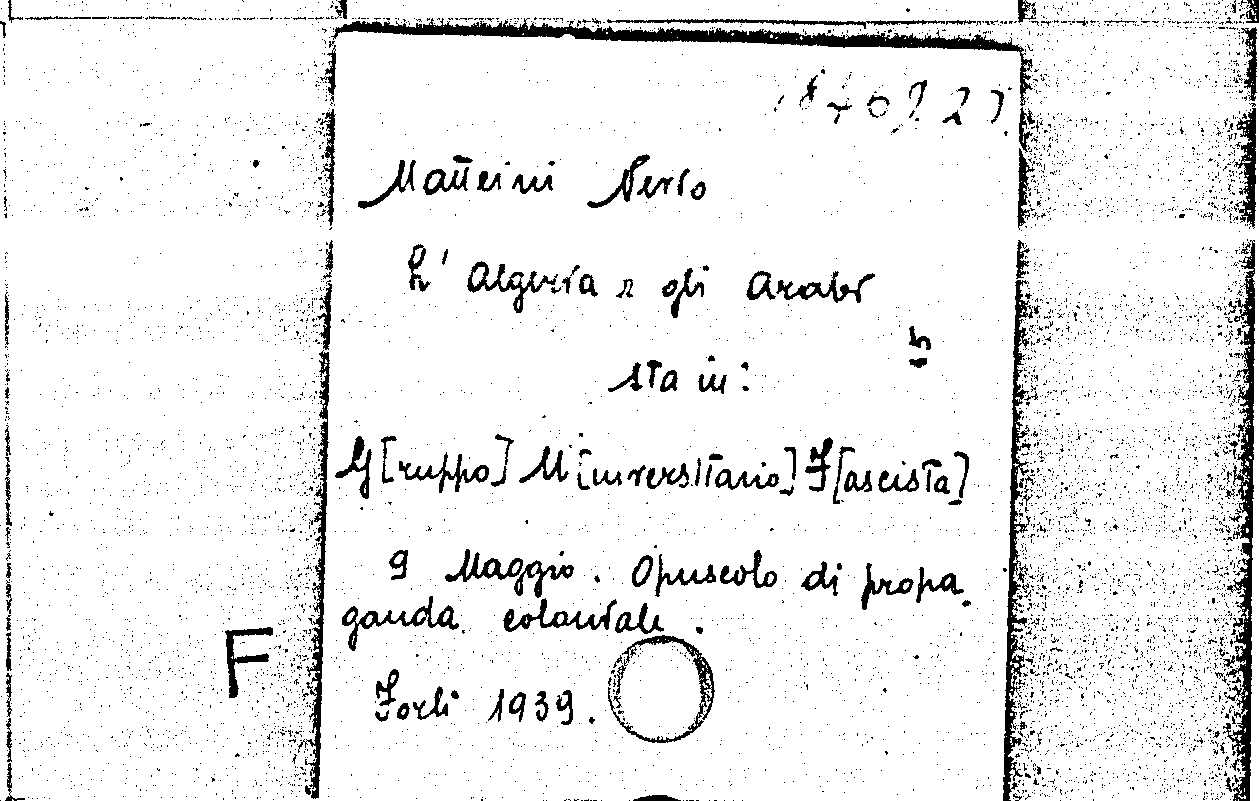 Matteini Nerio
L' Algeria e gli Arabi
15
sta in:
G[ruppo] U[niversitario] F[ascista]
9 Maggio. Opuscolo di propa
ganda coloniale.
F
Forlì 1939.